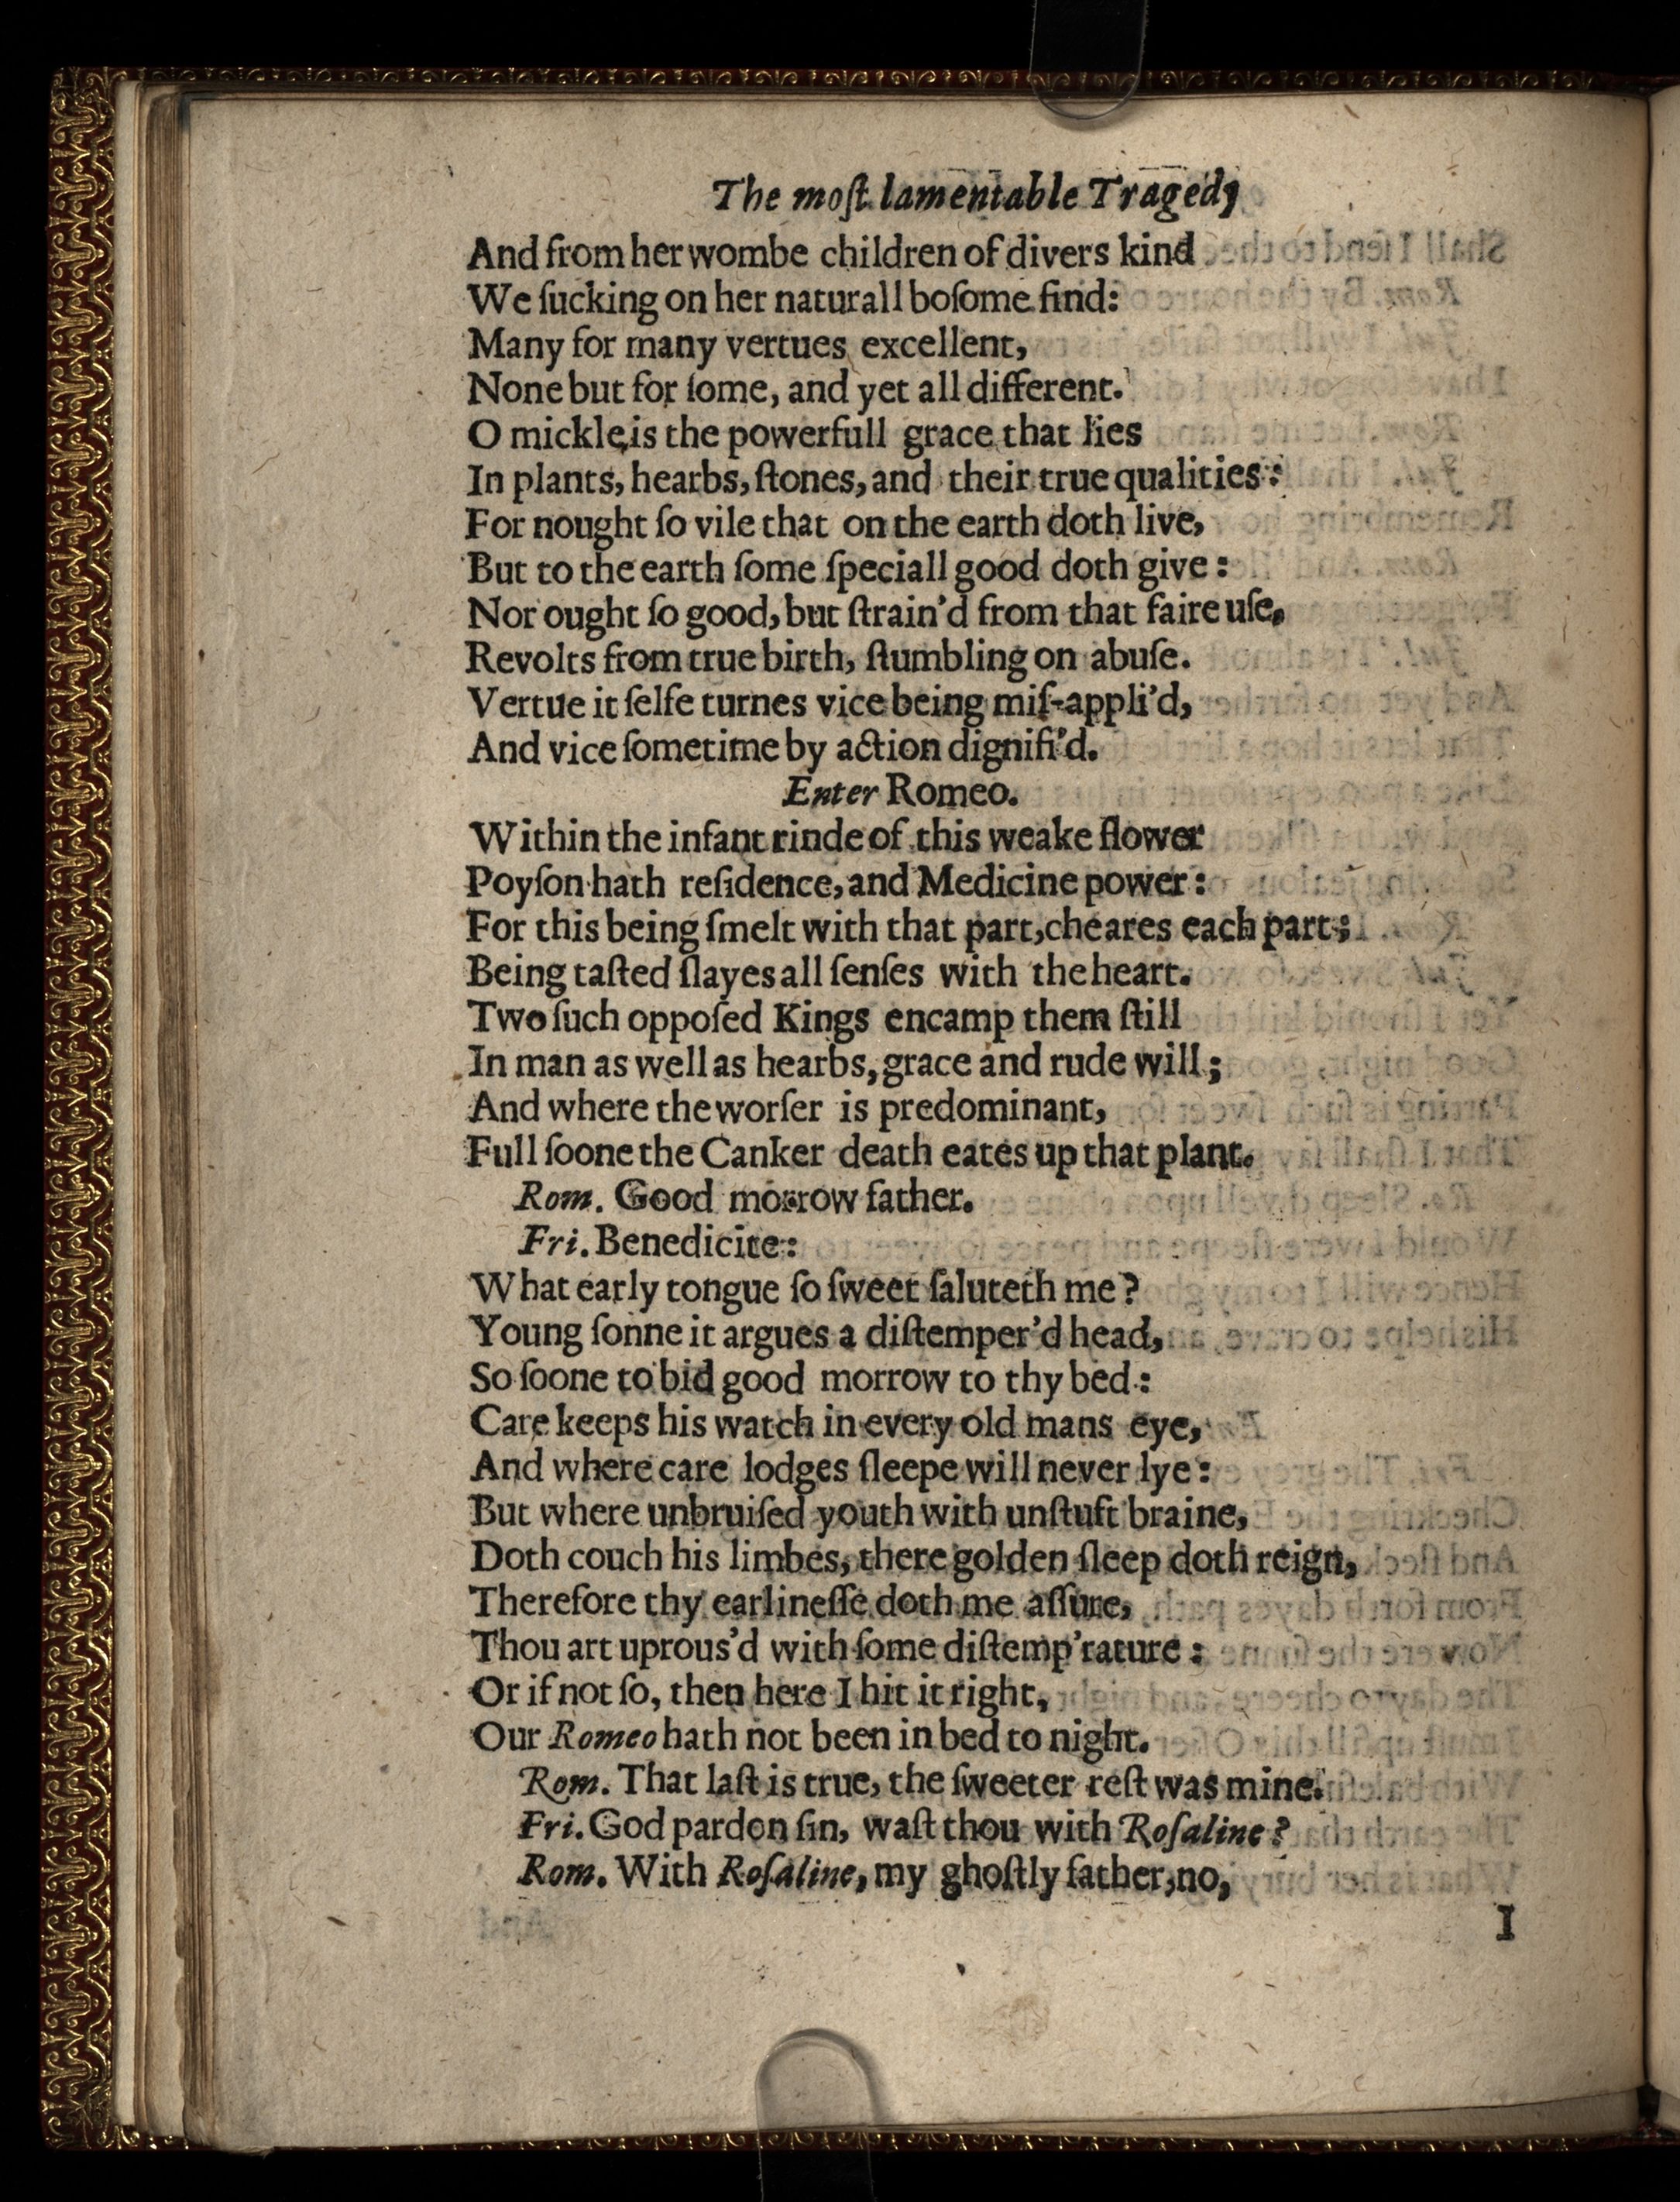 The moſt lamentable Tragedy
And from her wombe children of divers kind
We ſucking on her naturall boſome find:
Many for many vertues excellent,
None but for ſome, and yet all different.
O mickle is the powerfull grace that lies
In plants, hearbs, ſtones, and their true qualities:
For nought ſo vile that on the earth doth live,
But to the earth ſome ſpeciall good doth give:
Nor ought ſo good, but ſtrain'd from that faire uſe,
Revolts from true birth, ſtumbling on abuſe.
Vertue it ſelfe turnes vice being miſ-appli'd,
And vice ſometime by action dignifi'd.
Enter Romeo.
Within the infant rinde of this weake flower
Poyſon hath reſidence, and Medicine power:
For this being ſmelt with that part, cheares each part;
Being taſted ſlayes all ſenſes with the heart.
Two ſuch oppoſed Kings encamp them ſtill
In man as well as hearbs, grace and rude will;
And where the worſer is predominant,
Full ſoone the Canker death eates up that plant.
Rom. Good morrow father.
Fri. Benedicite:
What early tongue ſo ſweet ſaluteth me?
Young ſonne it argues a diſtemper'd head,
So ſoone to bid good morrow to thy bed:
Care keeps his watch in every old mans eye,
And where care lodges ſleepe will never lye:
But where unbruiſed youth with unſtuft braine,
Doth couch his limbes, there golden ſleep doth reign,
Therefore thy earlineſſe doth me aſſure,
Thou art uprous'd with ſome diſtemp'rature:
Or if not ſo, then here I hit it right,
Our Romeo hath not been in bed to night.
Rom. That laſt is true, the ſweeter reſt was mine.
Fri. God pardon ſin, waſt thou with Roſaline?
Rom. With Roſaline, my ghoſtly father, no,
I